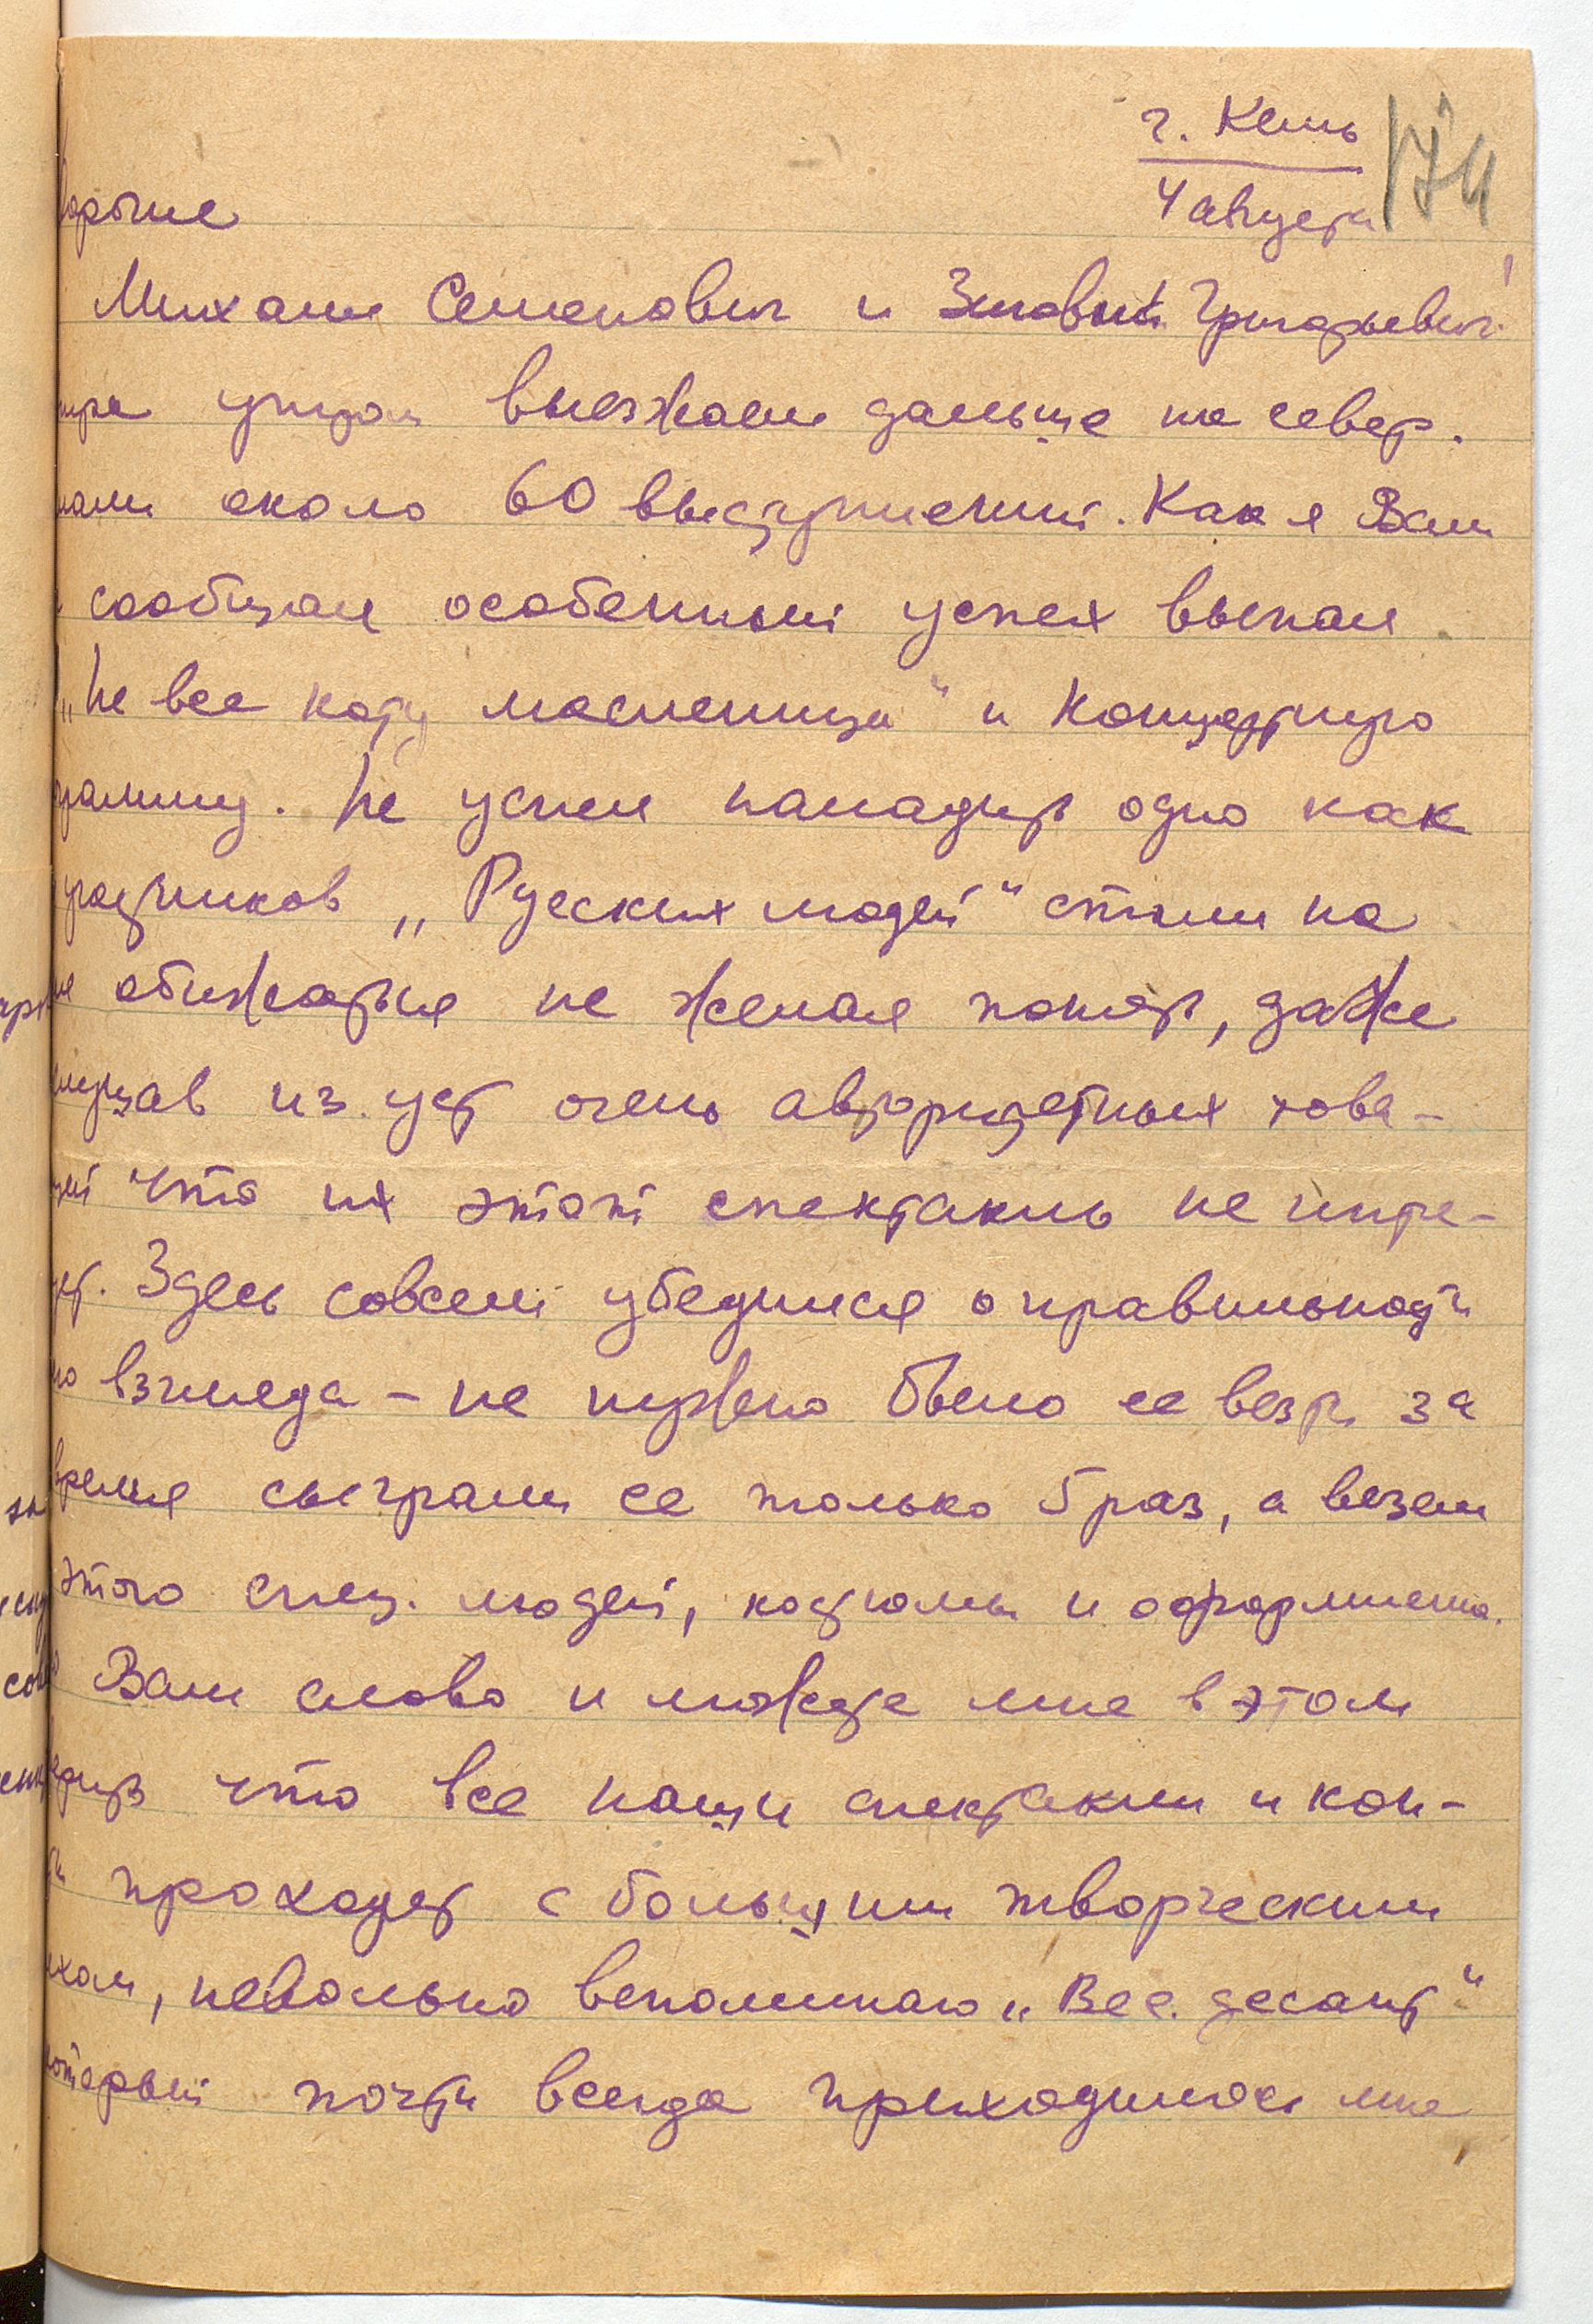 г. Кемь
174
4 августа
дорогие
Михаил Семенович и Зиновий Григорьевич!
утром выезжаем дальше на север.
около 60 выступлений. Как я Вам
сообщал особенный успех выпал
„Не все коту масленица" и Концертную
грамму. Не успел наладить одно как
участников „Русских людей" стали на
обижаться не желая понять, даже
из уст очень авторитетных това-
что их этот спектакль не инте-
Здесь совсем убедился о правильности
взгляда – не нужно было ее везти за
время сыграли ее только 5 раз, а везем
этого спец. людей, костюмы и оформление.
Вам слово и можете мне в этом
что все наши спектакли и кон-
проходят с большим творческим
невольно вспоминаю „Вес. десант"
который почти всегда приходилось мне